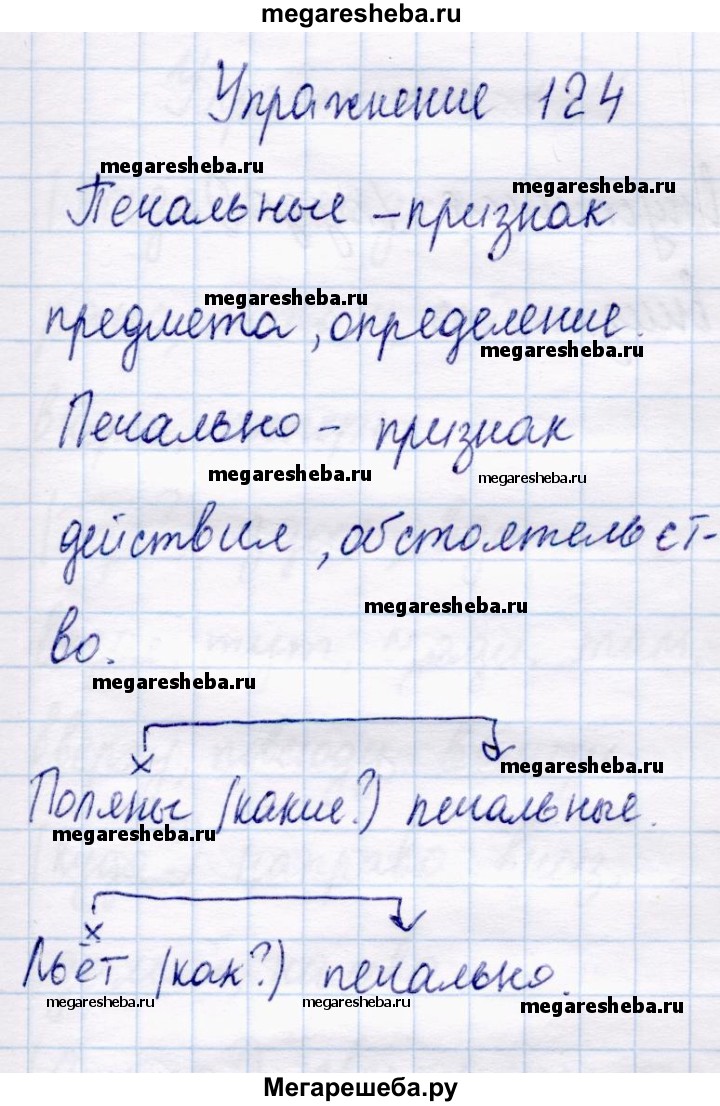 megaresheba.ru
Упражнение 124
megaresheba.ru
megaresheba.ru
Печальные - признак
megaresheba.ru
предмета, определение.
megaresheba.ru
Печально - признак
megaresheba.ru
megaresheba.ru
действия, обстоятельст-
megaresheba.ru
во.
megaresheba.ru
х
megaresheba.ru
Поляны (какие?) печальные.
megaresheba.ru
х
Льёт (как?) печально.
megaresheba.ru
megaresheba.ru
megaresheba.ru
Мегарешеба.ру